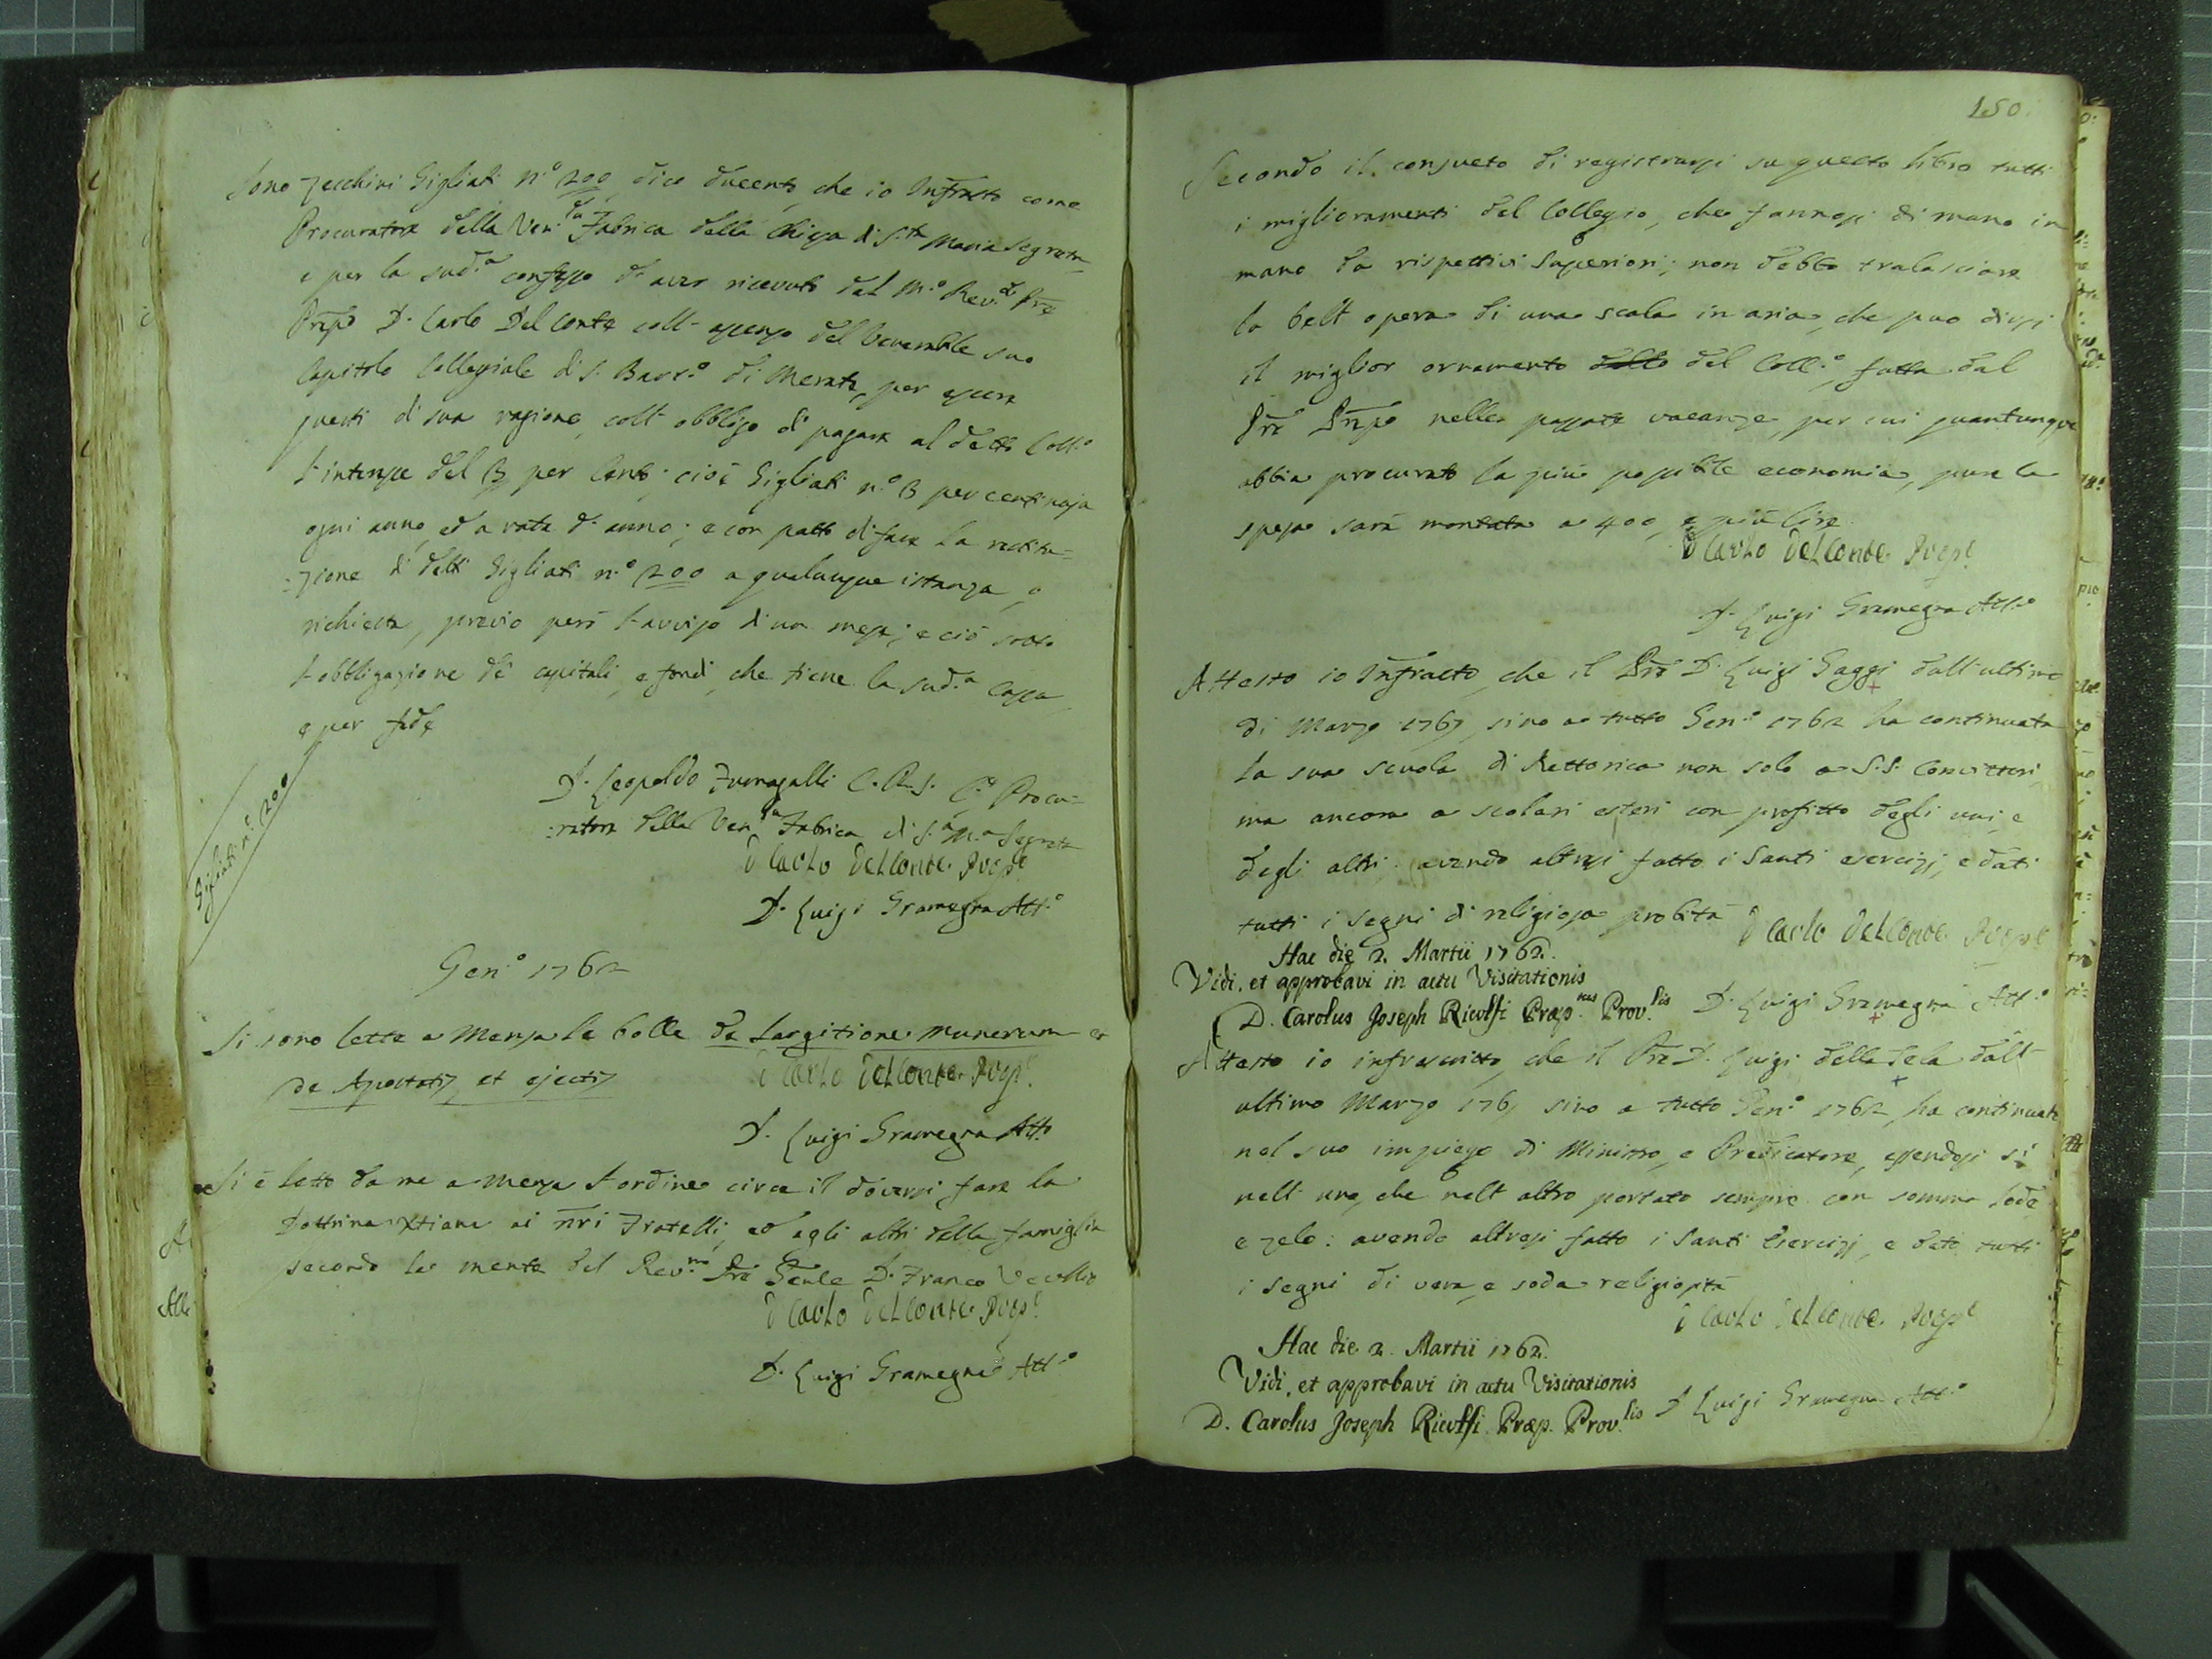 Sono zecchini Gigliati n.º 200 dico ducento, che io Infratto come
Procuratore della Ven.da Fabrica della Chiesa di S.ta Maria Segreta
e per la sud.a confesso di aver ricevuto dal M.º Rev.do Pre
Prepo D. Carlo Del Conte coll' assenso del Venerabile suo
Capitolo Collegiale di S. Bart.º di Merate, per essere
questi di sua ragione, coll' obbligo di pagare al detto Coll.º
l'interesse del 3 per Cento; cioè Gigliati n.º 3 per centinajo
ogni anno, ed a rata di anno; e con patto di fare la restitu=
=zione di detti Gigliati n.º 200 a qualunque istanza, o
richiesta, previo però l'avviso di un mese; e ciò sotto
l'obbligazione de capitali, e fondi, che tiene la sud.a Cassa
e per fede
Gigliati n.º 200
D. Leopoldo Fumagalli C.R.S. Procu=
=ratore della Ven.da Fabrica di S.a M.a Segreta
D Carlo Del Conte Prep.
D. Luigi Gramegna Att.º
Gen.º 1762
Si sono lette a Mensa le bolle de Largitione munerum et
de Apostatis, et ejectis
D Carlo Del Conte Prep.
D. Luigi Gramegna Att.º
Si è letto da me a Mensa l'ordine circa il doversi fare la
Dottrina Xtiana ai nri Fratelli, ed agli altri della famiglia
secondo la mente del Rev.mo Pre Genle D. Franco Vecellio
D Carlo Del Conte Prep.
D. Luigi Gramegna Att.º
150.
Secondo il consueto di registrarsi su questo libro tutti
i miglioramenti del Collegio, che fannosi di mano in
mano da rispettivi Superiori; non debbo tralasciare
la bell' opera di una scala in aria, che puo dirsi
il miglior ornamento dello del Coll.º, fatta dal
Pre Prepo nelle passate vacanze, per cui quantunque
abbia procurato la più possibile economia, pure la
spesa sarà montata a 400, e più lire
D Carlo Del Conte Prep.
D. Luigi Gramegna Att.º
Attesto io Infratto, che il Pre D. Luigi Gaggi dall' ultimo
di Marzo 1761 sino a tutto Gen.º 1762 ha continuata
la sua scuola di Rettorica non solo a S.S. Convittori,
ma ancora a scolari esteri con profitto degli uni, e
degli altri: avendo altresi fatto i Santi esercizj, e dati
tutti i segni di religiosa probità
D Carlo Del Conte Prep.
Hac die 2. Martii 1762.
Vidi, et approbavi in actu Visitationis
D. Carolus Joseph Ricolfi Præp.tus Prov.lis
D. Luigi Gramegna Att.º
Attesto io infrascritto, che il Pre D. Luigi della Tela dall'
ultimo Marzo 1761 sino a tutto Gen.º 1762, ha continuato
nel suo impiego di Ministro, e Predicatore, essendosi sì
nell' uno, che nell' altro portato sempre con somma lode
e zelo: avendo altresi fatto i Santi Esercizj, e dato tutti
i segni di vera, e soda religiosità
D Carlo Del Conte Prep.
Hac die 2. Martii 1762.
Vidi, et approbavi in actu Visitationis
D. Carolus Joseph Ricolfi Præp. Prov.lis
D Luigi Gramegna Att.º